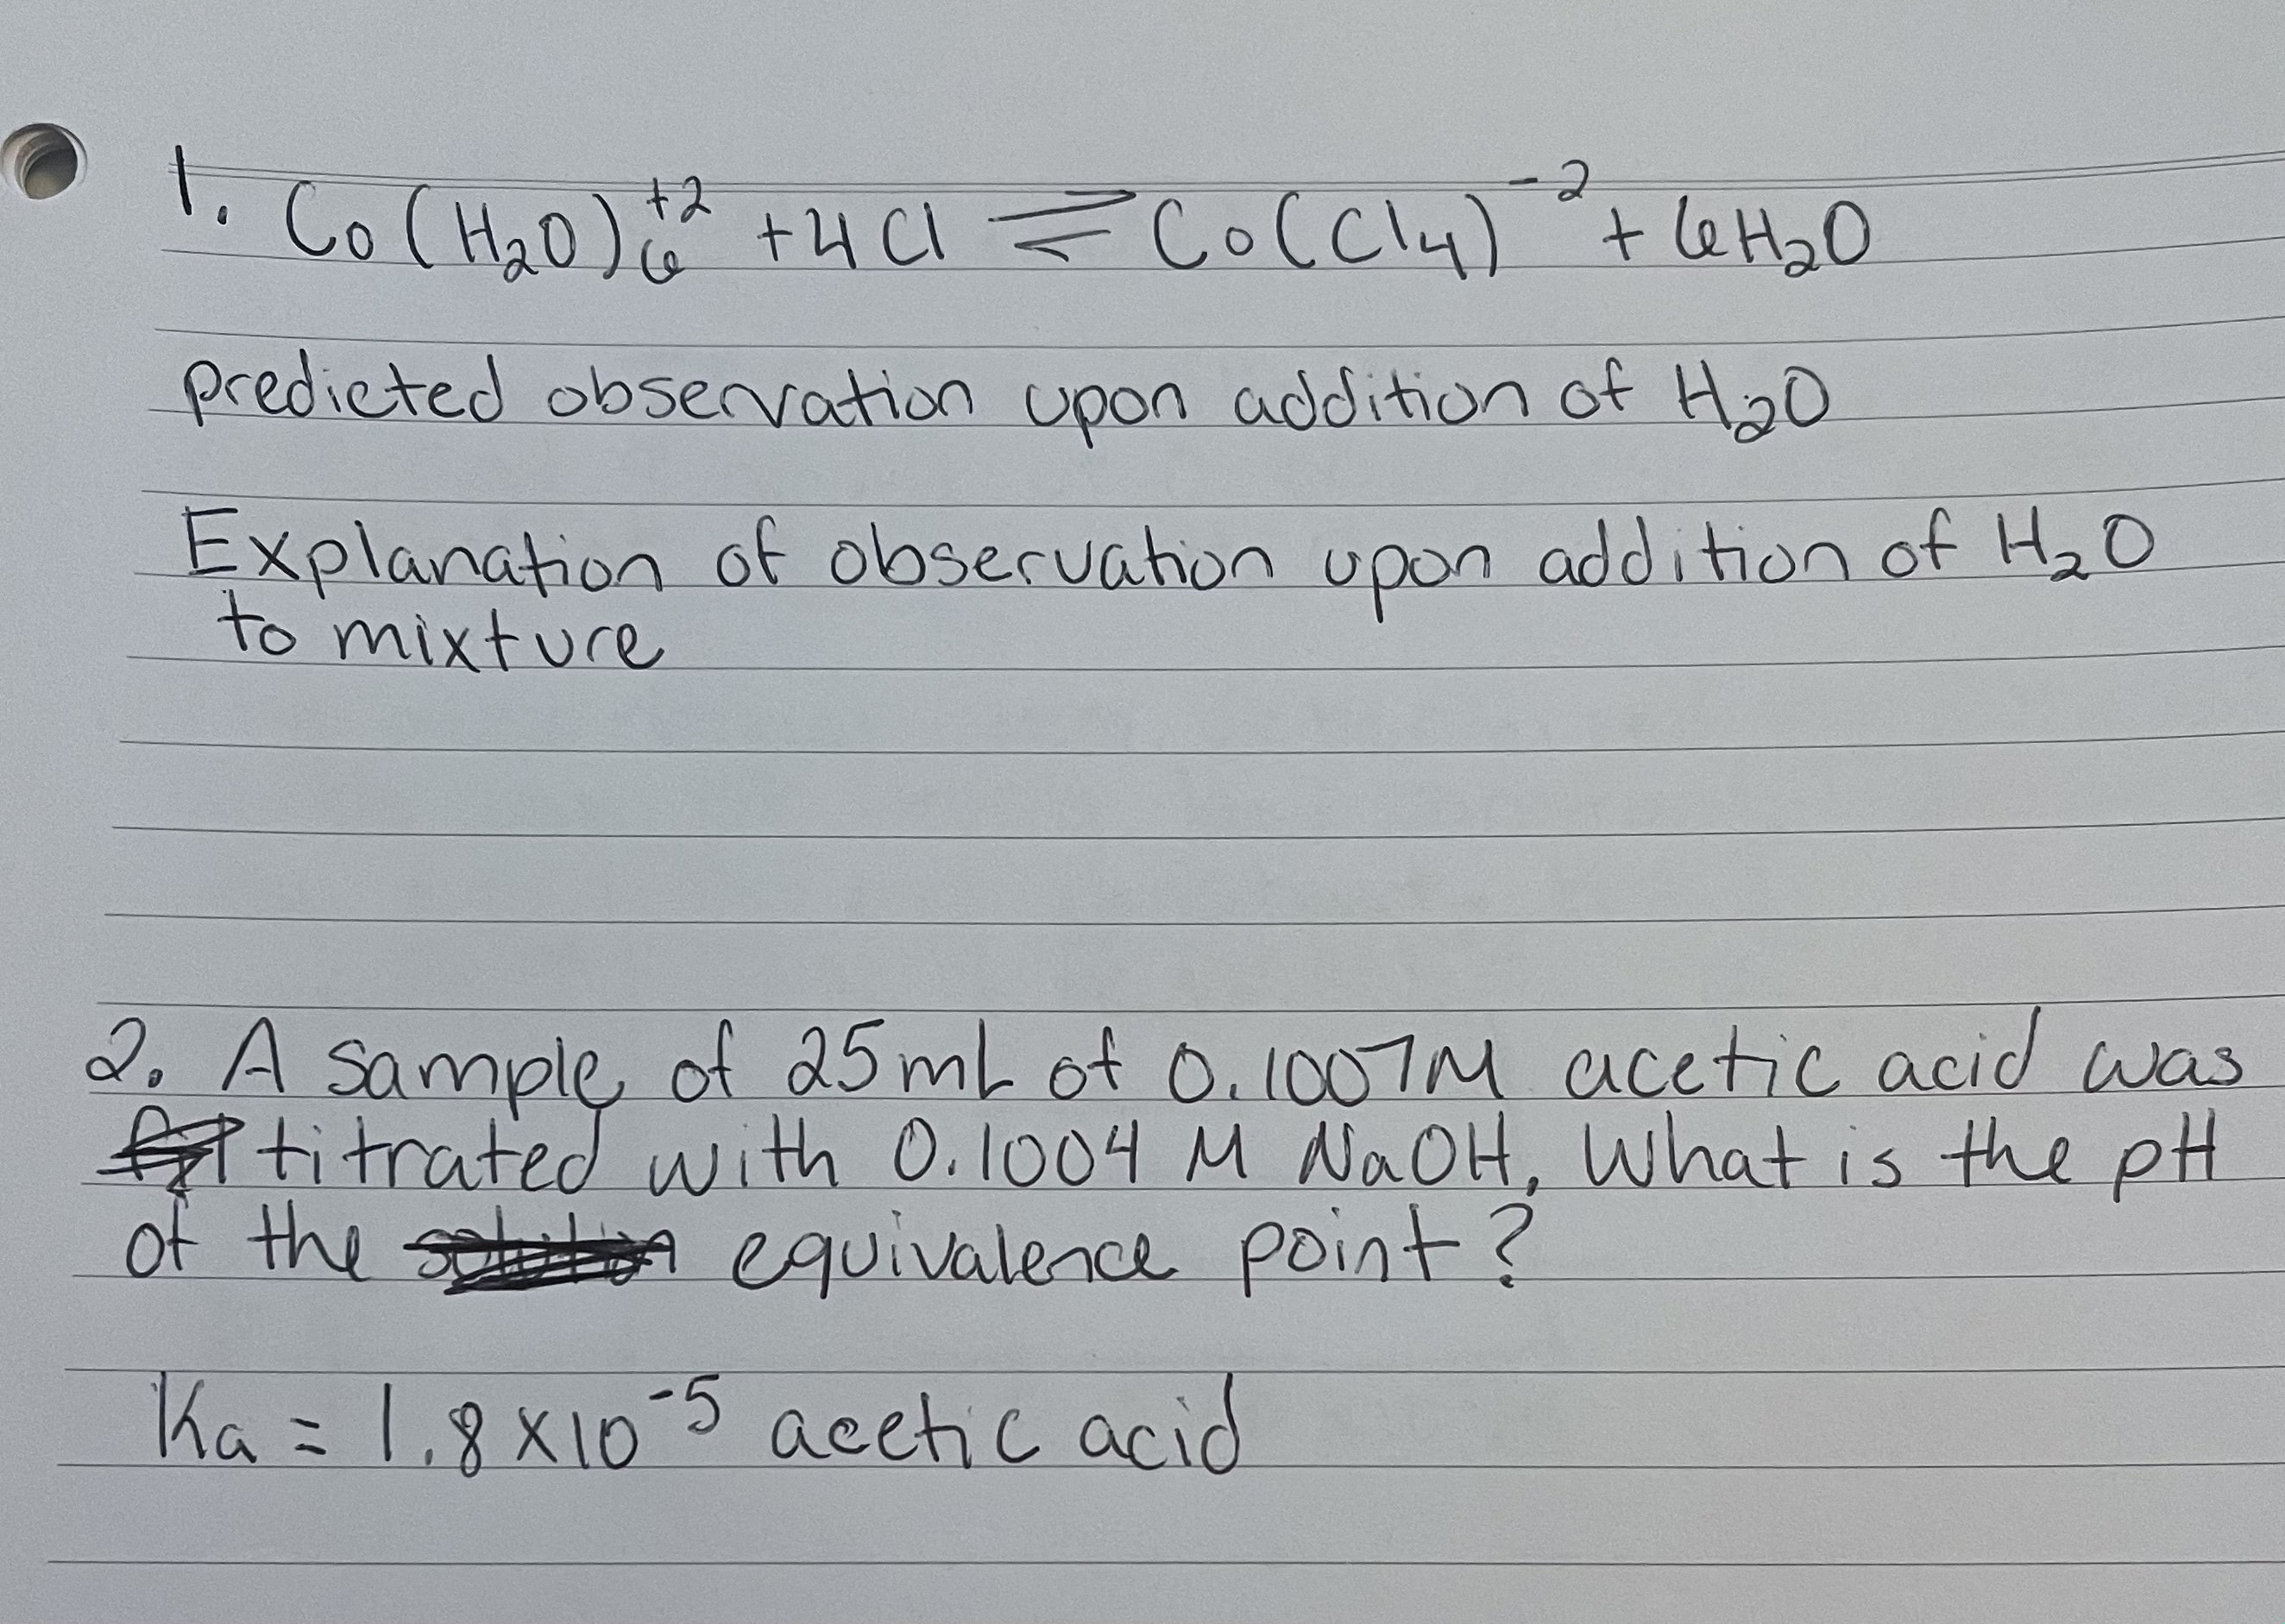 1. Co(H₂O)₆⁺² + 4Cl ⇌ Co(Cl₄)⁻² + 6H₂O
predicted observation upon addition of H₂O
Explanation of observation upon addition of H₂O
to mixture
2. A sample of 25mL of 0.1007M acetic acid was
titrated with 0.1004 M NaOH. What is the pH
of the equivalence point?
Ka = 1.8x10⁻⁵ acetic acid